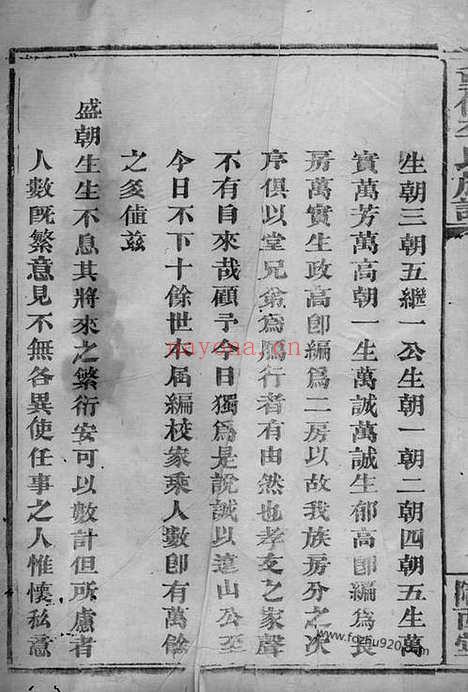 生朝三朝五繼一公生朝一朝二朝四朝五生萬
實萬芳萬高朝一生萬誠萬誠生郁高卽編爲長
房萬實生政高卽編爲二房以故我族房分之次
序俱以堂兄爲鴈行者有由然也孝友之家聲
不有自來哉顧予今日獨爲是說誠以遠山公至
今日不下十餘世本屆編校家乘人數卽有萬餘
之多值茲
盛朝生生不息其將來之繁衍安可以數計但所慮者
人數旣繁意見不無各異使任事之人惟懷私意
nayona.cn
www.fozhu920.com